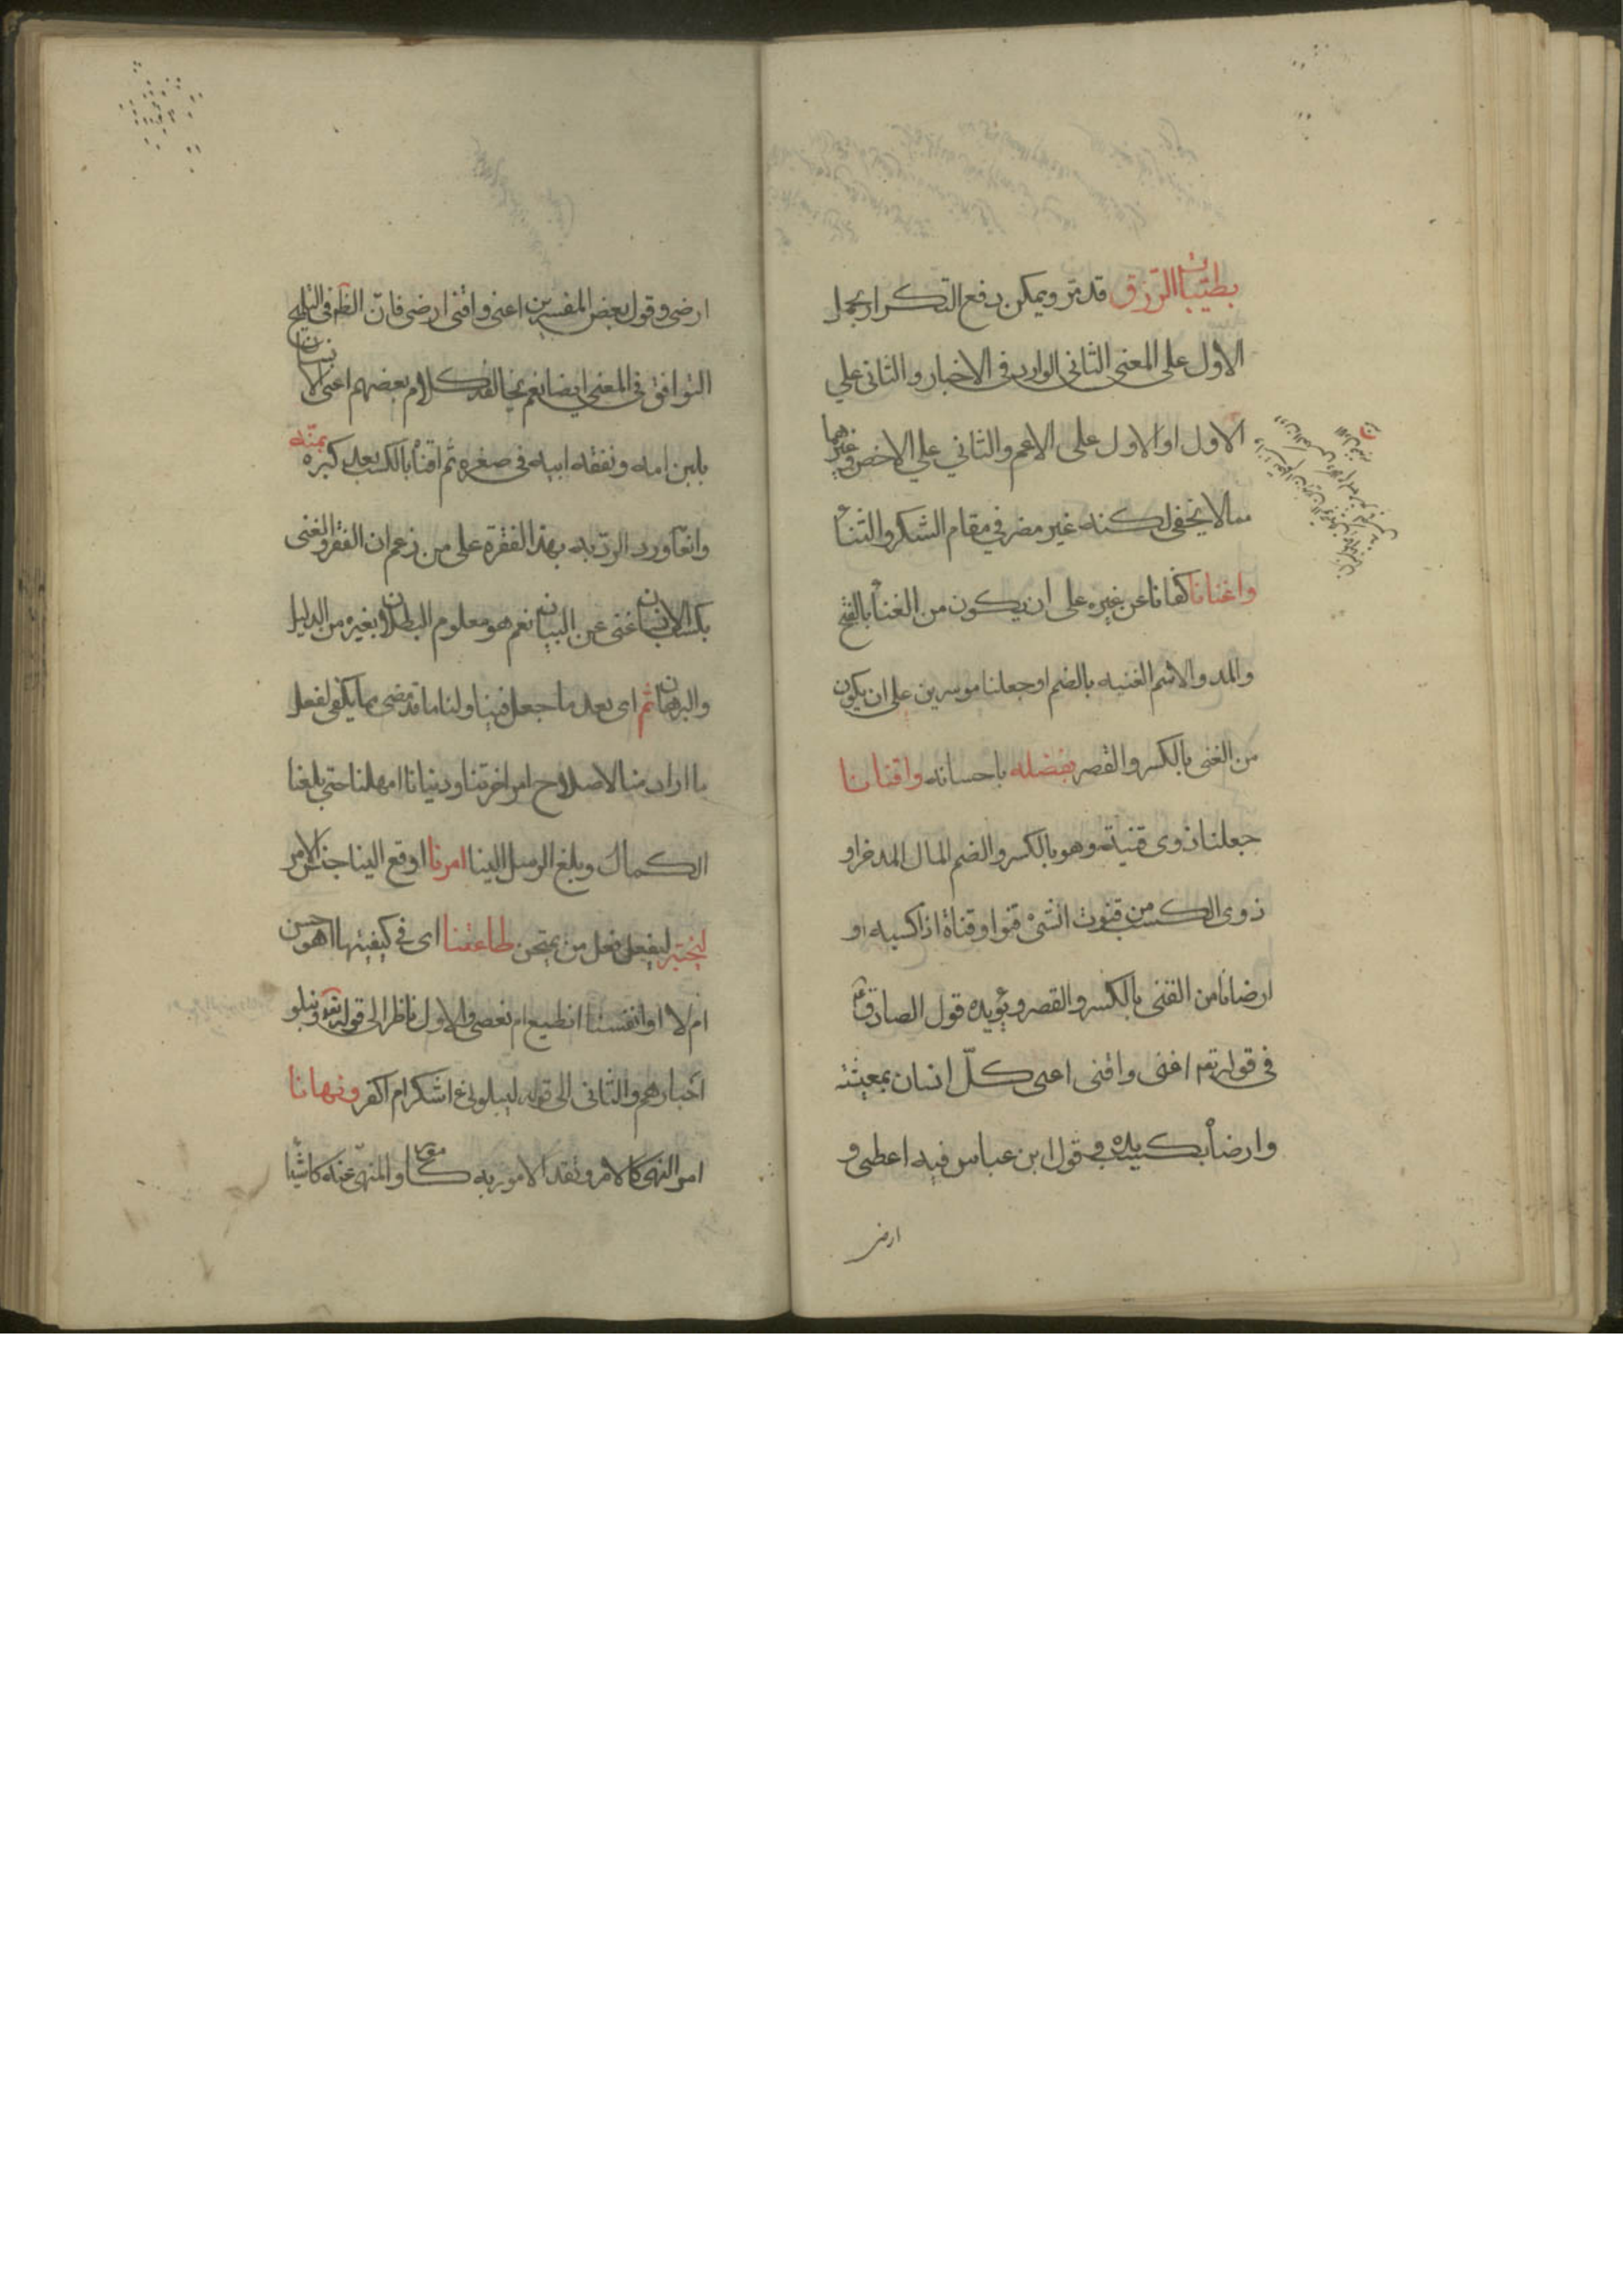 بطیّبات الرّزق قد مرّ ویمکن دفع التکرار بحمل
الاول علی المعنی الثانی الوارد فی الاخبار والثانی علی
الاول او الاول علی الاعم والثانی علی الاخص وفی غیرهما
مما لا یخفی لکنه غیر مضر فی مقام الشکر والثناء
واغنانا کفانا عن غیره علی ان یکون من الغناء بالفتح
والمد والاسم الغنیه بالضم او جعلنا موسرین علی ان یکون
من الغنی بالکسر والقصر بفضله باحسانه واقنانا
جعلنا ذوی قنیة وهو بالکسر والضم المال المدخر او
ذوی الکسب من قنوت الشیٔ قنوا وقناة اذا کسبه او
ارضانا من القنی بالکسر والقصر ویؤیده قول الصادق ع
فی قوله تع اغنی واقنی اعنی کلّ انسان بمعیشته
وارضاه بکسب یده وفی قول ابن عباس فیه اعطی و
ارض
ارضی وقول بعض المفسرین اغنی واقنی ارضی فانّ الظ فی التلمیح
التوافق فی المعنی ایضا نعم یخالفه کلام بعضهم اغنی الانسان
بلبن امه ونفقه ابیه فی صغره ثم اقناه بالکسب بعد کبره بمنّه
وانما ورد الردّ به بهذا الفقرة علی من زعم ان الفقر والغنی
بکسب الانسان غنی عن البیان نعم هو معلوم البطلان بغیره من الدلیل
والبرهان ثم ای بعد ما جعل فینا ولنا ما قد مضی مما یکفی لفعل
ما اراد منا لاصلاح امر اخرتنا ودنیانا امهلنا حتی بلغنا
الکمال وبلغ الرسل الینا امرنا اوقع الینا جنس الامر
لیختبر لیفعل فعل من یمتحن طاعتنا ای فی کیفیتها اهو حسن
ام لا او انفسنا انطیع ام نعصی والاول ناظر الی قوله تع ونبلو
اخبارهم والثانی الی قوله لیبلونی ءاشکر ام اکفر ونهانا
امر النهی کالامر وفقد الامور به کما مرّ والمنهی عنه کاشیا